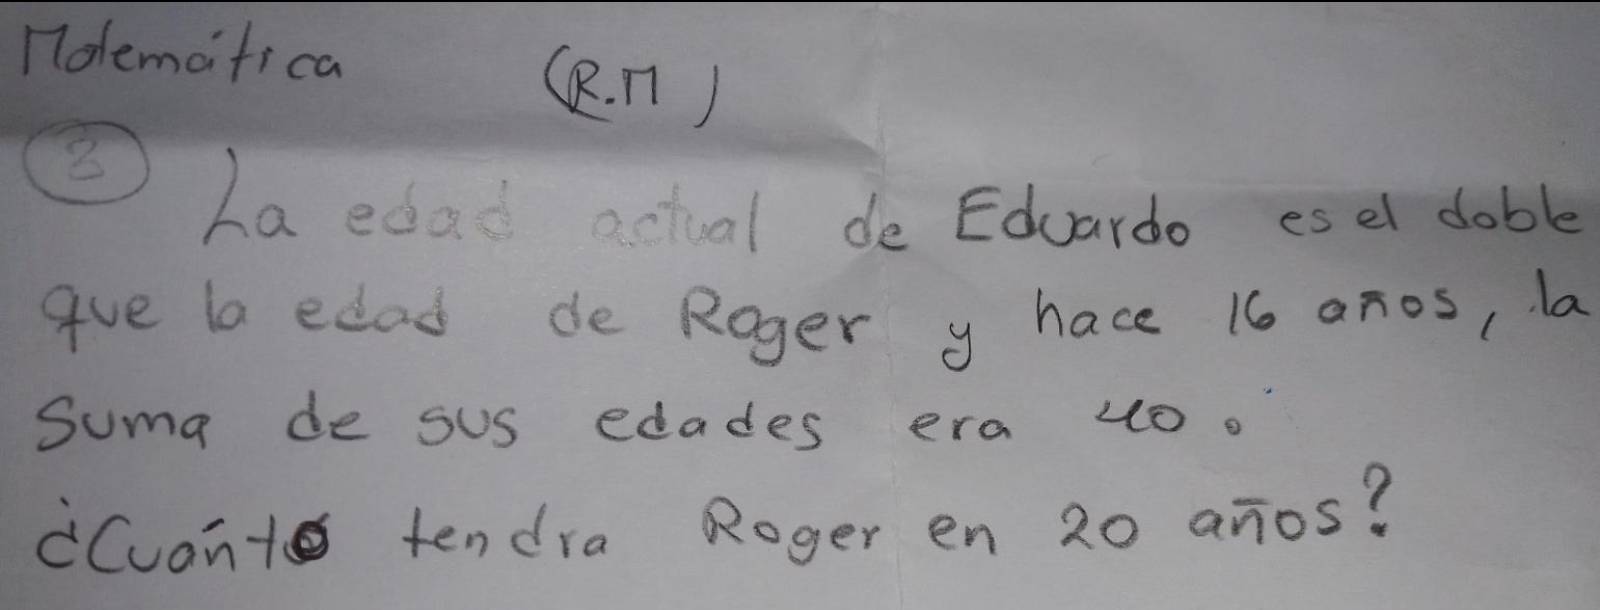 Matemática (R.M)
3 La edad actual de Eduardo es el doble
que la edad de Roger y hace 16 años, la
suma de sus edades era 40.
¿Cuánto tendra Roger en 20 años?